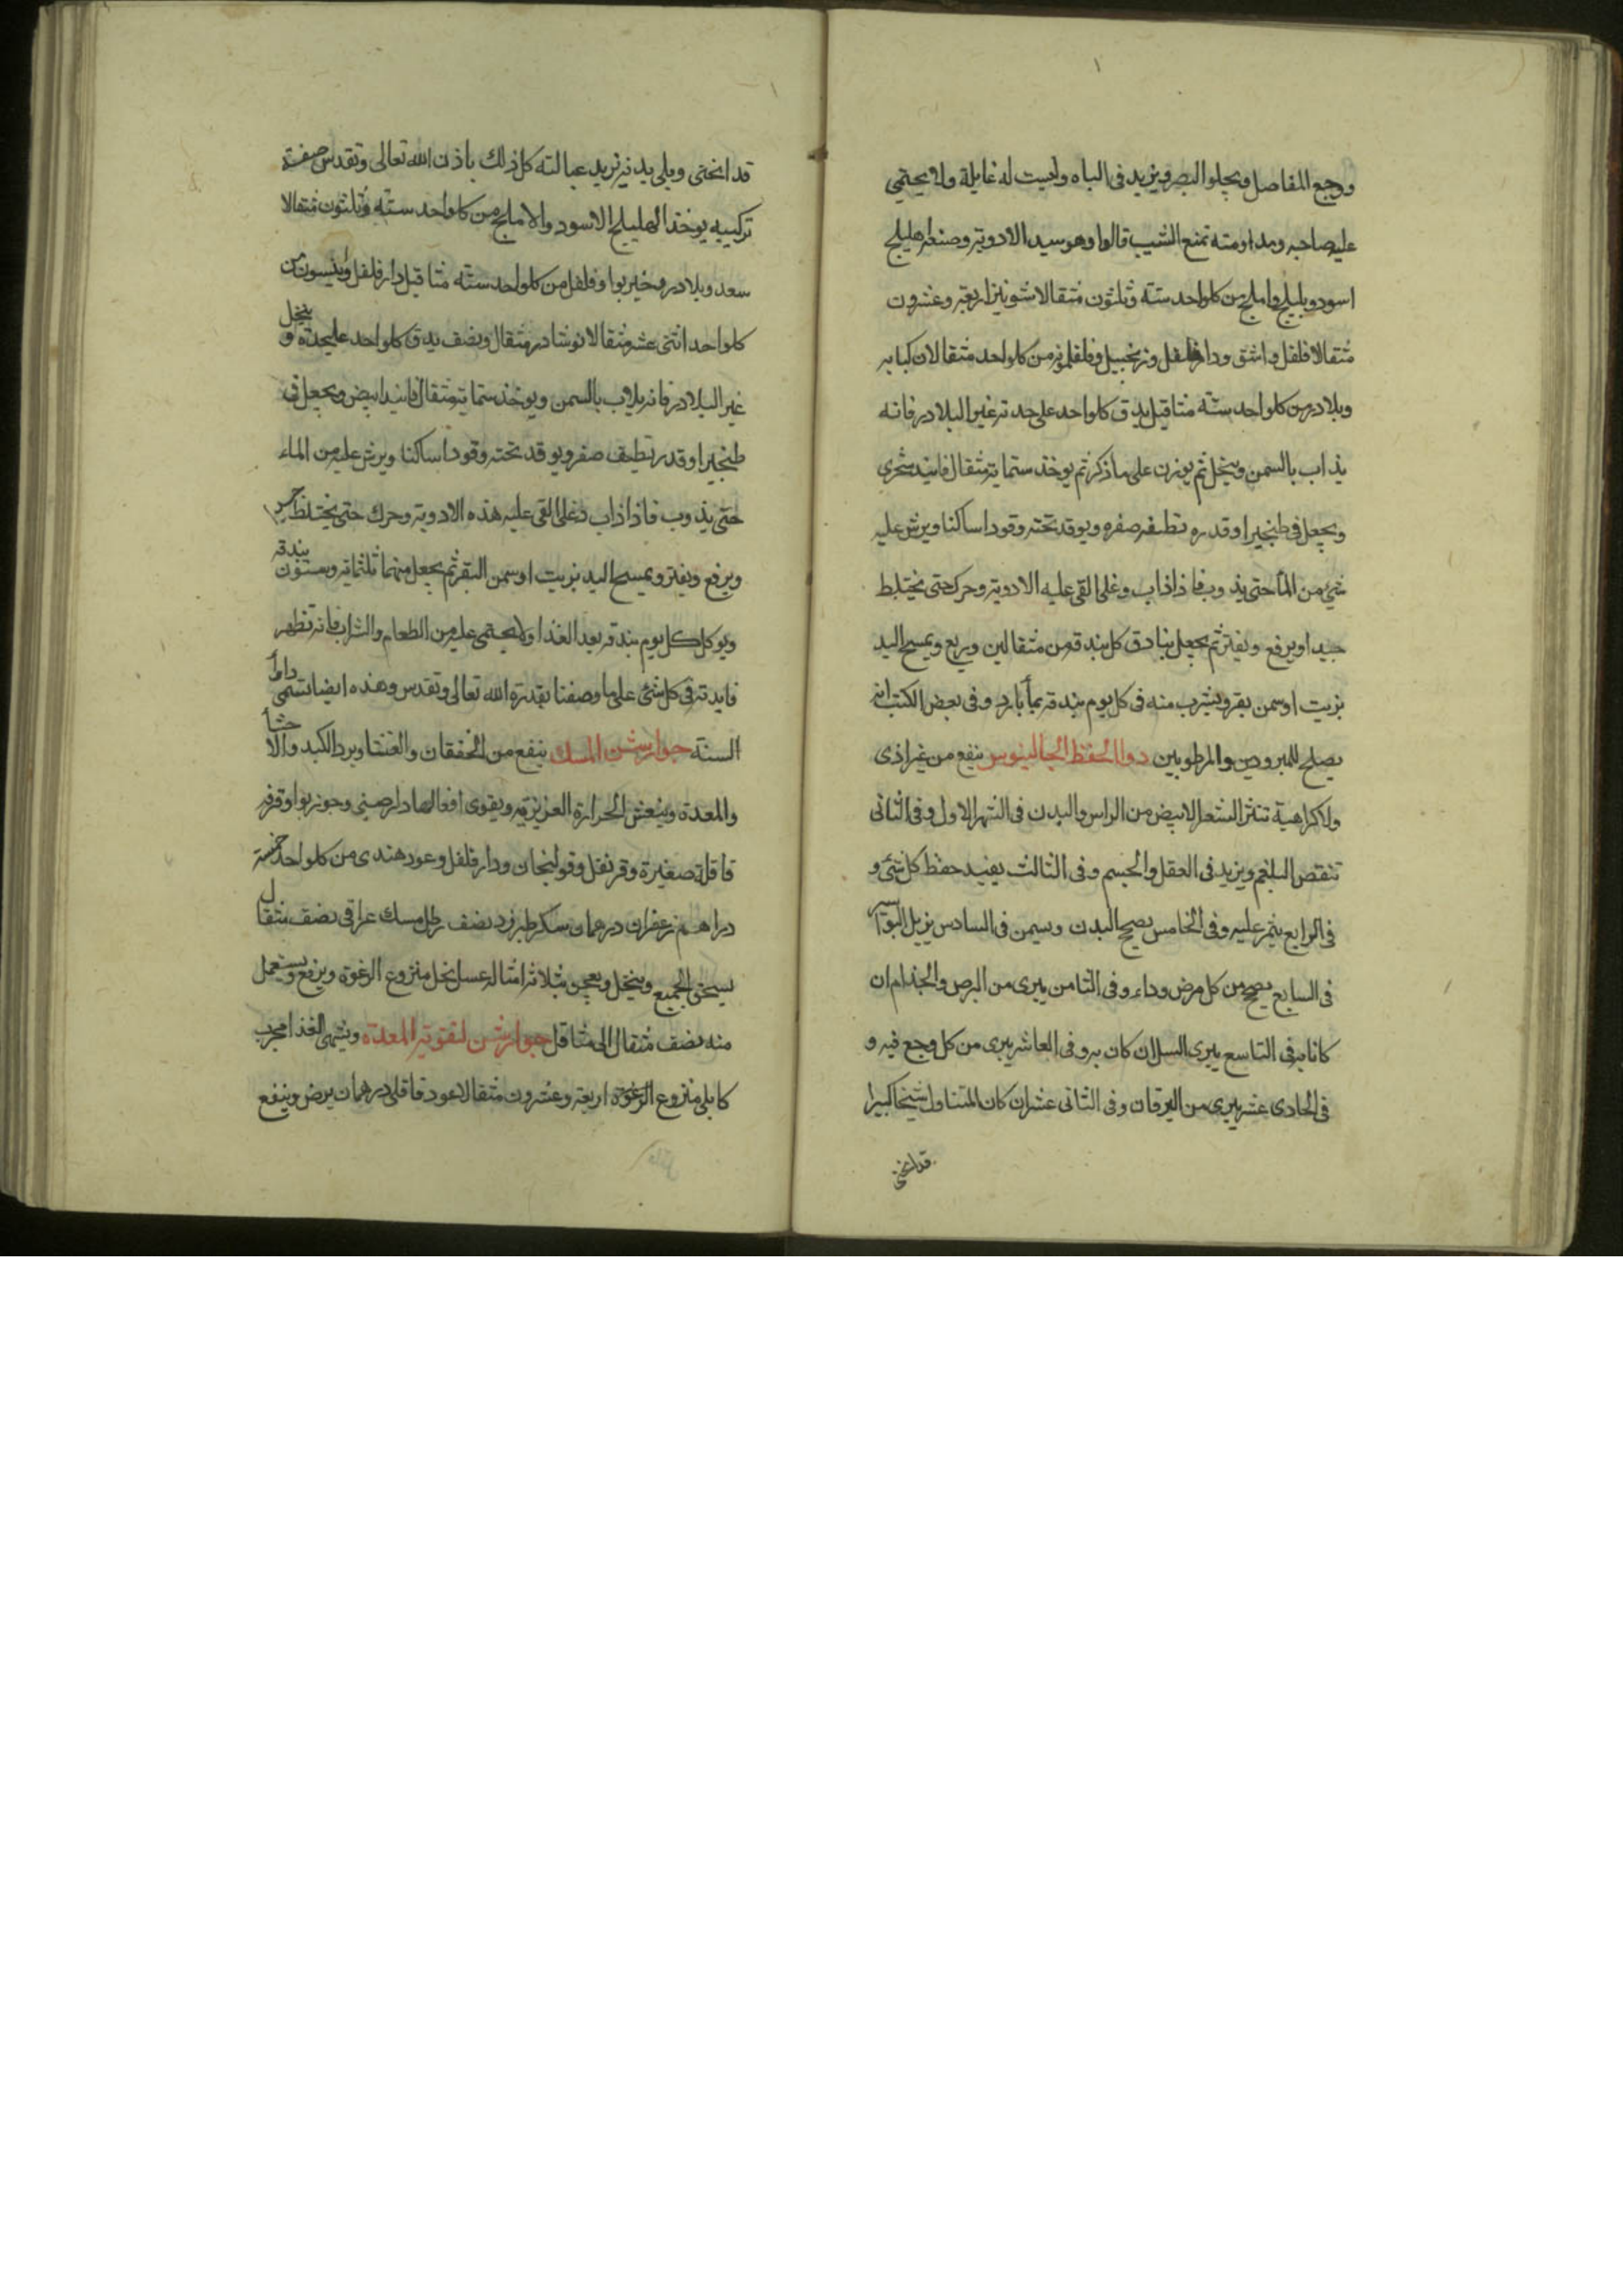 ووجع المفاصل ويجلوا البصر ويزيد فى الباه وليست له غايلة ولا يحتمي
عليه صاحبه ومداومته تمنع الشيب قالوا وهو سيد الادوية وصنعته هليلج
اسود وبليلج واملج من كلواحد ستة وثلثون مثقالا شونيز اربعة وعشرون
مثقالا فلفل واشق ودارفلفل وزنجبيل وفلفلمونه من كلواحد مثقالان كبابه
وبلادر من كلواحد ستة مثاقيل يدق كلواحد على حدته غير البلادر فانه
يذاب بالسمن وينخل ثم يوزن على ماذكر ثم يوخذ ستماية مثقال فانيد شجري
ويجعل فى طنجير او قدره نظيفه صفره ويوقد تحته وقودا ساكنا ويرش عليه
شيء من الماء حتى يذوب فاذا ذاب وغلى القى عليه الادوية وحرك حتى يختلط
جيدا ويرفع ويفتر ثم يجعل بنادق كل بندقة من مثقالين وربع ويمسح اليد
بزيت او سمن بقر ويشرب منه فى كل يوم بندقة بماء بارد وفى بعض الكتب انه
يصلح للمبرودين والمرطوبين دوا الحفظ لجالينوس ينفع من غير اذى
ولا كراهية تنثر الشعر الابيض من الراس والبدن فى الشهر الاول وفى الثانى
تنقص البلغم ويزيد فى العقل والجسم وفى الثالث يفيد حفظ كل شئ و
فى الرابع يثمر عليه وفى الخامس يصح البدن وسيمن فى السادس يزيل البواسير
فى السابع يصح من كل مرض وداء وفى الثامن يبرى من البرص والجذام ان
كانا به فى التاسع يبرى السل ان كان به وفى العاشر يبرى من كل وجع فيه و
فى الحادى عشر يبرى من اليرقان وفى الثانى عشر ان كان المتناول شيخا كبيرا
قد انحنى
قد انحنى وبلى بدنه تزيد عبالته كل ذلك باذن الله تعالى وتقدس صفة
تركيبه يوخذ الهليلج الاسود والاملج من كلواحد ستة وثلثون مثقالا
سعد وبلادر وخيربوا وفلفل من كلواحد ستة مثاقيل دارفلفل وانيسون من
كلواحد اثنى عشر مثقالا نوشادر مثقال ونصف يدق كلواحد عليحدته و ينخل
غير البلادر فانه يلاب بالسمن ويوخذ ستماية مثقال فانيد ابيض ويجعل فى
طنجير او قدر نظيف صفر ويوقد تحته وقودا ساكنا ويرش عليه من الماء
حتى يذوب فاذا ذاب وغلى القى عليه هذه الادوية وحرك حتى يختلط جيدا
ويرفع ويفتر ويمسح اليد بزيت او سمن البقر ثم يجعل منهما ثلثماية وستون بندقة
ويوكل كل يوم بندقة بعد الغذا ولا يحتمى عليه من الطعام والشراب فانه تظهر
فايدته فى كل شئ على ما وصفنا بقدرة الله تعالى وتقدس وهذه ايضا تسمى دواء
السنة جوارشن المسك ينفع من الخفقان والغشا وبرد الكبد والاحشاء
والمعدة وينعش الحرارة العزيزيه ويقوى افعالها دارصينى وجوزبوا وقرفه
قاقلة صغيرة وقرنفل وقولنجان ودارفلفل وعود هندى من كلواحد خمسة
دراهم زعفران درهمان سكر طبرزد نصف رطل مسك عراقى نصف مثقال
يسحق الجميع وينخل ويعجن بثلاثة امثاله عسل نحل منزوع الرغوة ويرفع ويستعمل
منه نصف مثقال الى مثاقل جوارشن لتقوية المعدة ويشهى الغذا مجرب
كابلى منزوع الرغوة اربعة وعشرون مثقالا عود قاقلى درهمان يرض وينقع